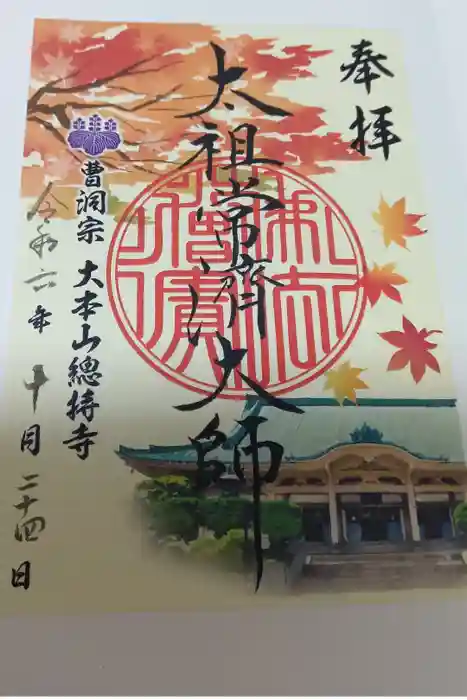 奉拝
太祖常済大師
曹洞宗 大本山總持寺
令和六年十月二十四日